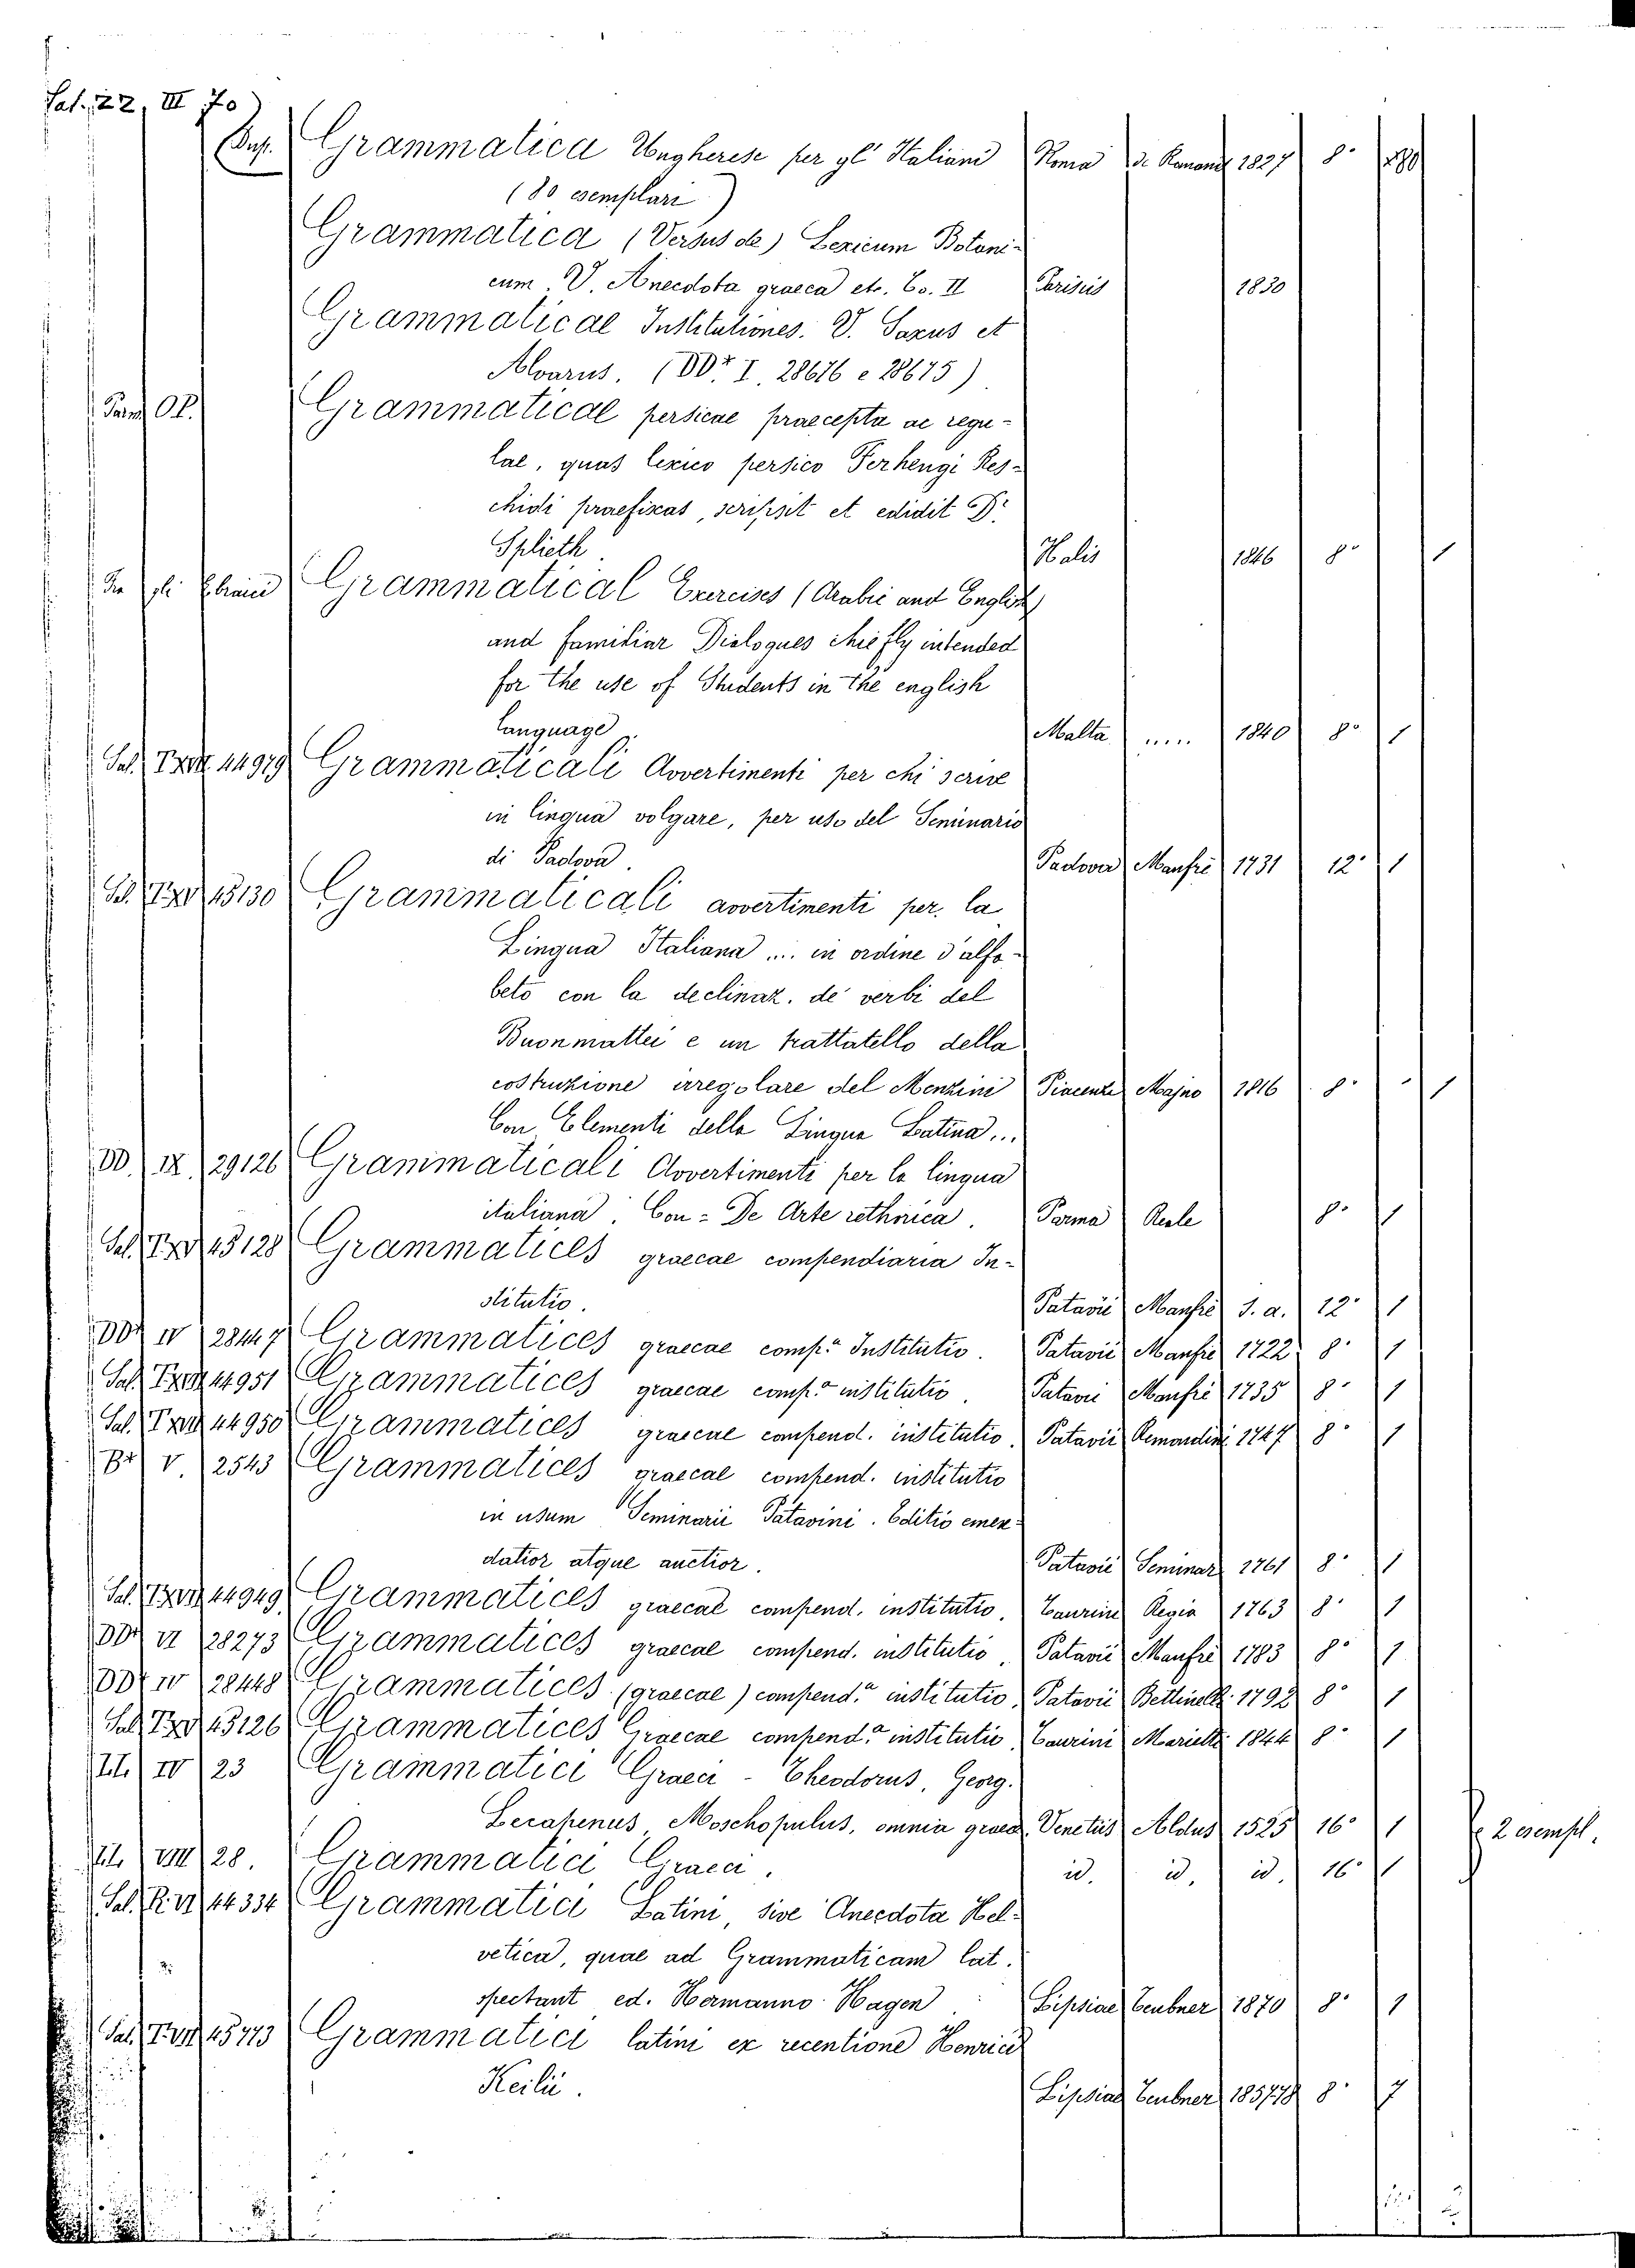 Sal. 22, III 70
Grammatica Ungherese per gl' Italiani Roma de Romanis 1827 8° 80
(80 esemplari)
Grammatica (Versus de) Lexicum Botani-
cum. V. Anecdota graeca etc. To. II Parisiis 1830
Grammaticae Institutiones. V. Saxus et
Alvarus. (DDr I. 28676 e 28675)
Or. Grammaticae persicae praecepta ac regu-
lae, quas lexico persico Ferhengi Res-
chidi praefixas, scripsit et edidit Dr
Splieth. Halis 1846 8° 1
Grammatical Exercises (Arabic and English)
and familiar Dialogues chiefly intended
for the use of Students in the english
language. Malta ..... 1840 8° 1
Sal. 44979 Grammaticali Avvertimenti per chi scrive
in lingua volgare, per uso del Seminario
di Padova. Padova Manfrè 1731 12° 1
45130 Grammaticali avvertimenti per la
Lingua Italiana ... in ordine d'alfa-
beto con la declinaz. de' verbi del
Buonmattei e un trattatello della
costruzione irregolare del Menzini Piacenza Majno 1816 8° 1
Con Elementi della Lingua Latina...
DD. IX. 29126 Grammaticali Avvertimenti per la lingua
italiana. Con = De Arte rethorica. Parma Reale 8° 1
Sal. 45128 Grammatices graecae compendiaria In-
stitutio. Patavii Manfrè s. a. 12° 1
DDr IV 28447 Grammatices graecae comp.a Institutio. Patavii Manfrè 1722 8° 1
Sal. 44951 Grammatices graecae comp.a institutio. Patavii Manfrè 1735 8° 1
Sal. 44950 Grammatices graecae compend. institutio. Patavii Remondini 1747 8° 1
Br V 2543 Grammatices graecae compend. institutio
in usum Seminarii Patavini. Editio emen-
datior atque auctior. Patavii Seminar. 1761 8° 1
Sal. 44949 Grammatices graecae compend. institutio. Taurini Regia 1763 8° 1
DDr VI 28273 Grammatices graecae compend. institutio. Patavii Manfrè 1783 8° 1
DDr IV 28448 Grammatices (graecae) compend.a institutio. Patavii Bettinelli 1792 8° 1
Sal. 45126 Grammatices Graecae compend.a institutio. Taurini Marietti 1844 8° 1
IV 23 Grammatici Graeci - Theodorus, Georg.
Lecapenus, Moschopulus, omnia graec. Venetiis Aldus 1525 16° 1 2 esempl.
VIII 28. Grammatici Graeci. id. id. id. 16° 1
Sal. 44334 Grammatici Latini, sive Anecdota Hel-
vetica, quae ad Grammaticam lat.
spectant ed. Hermanno Hagen. Lipsiae Teubner 1870 8° 1
Sal. 45773 Grammatici latini ex recentione Henrici
Keilii. Lipsiae Teubner 1857-78 8° 7